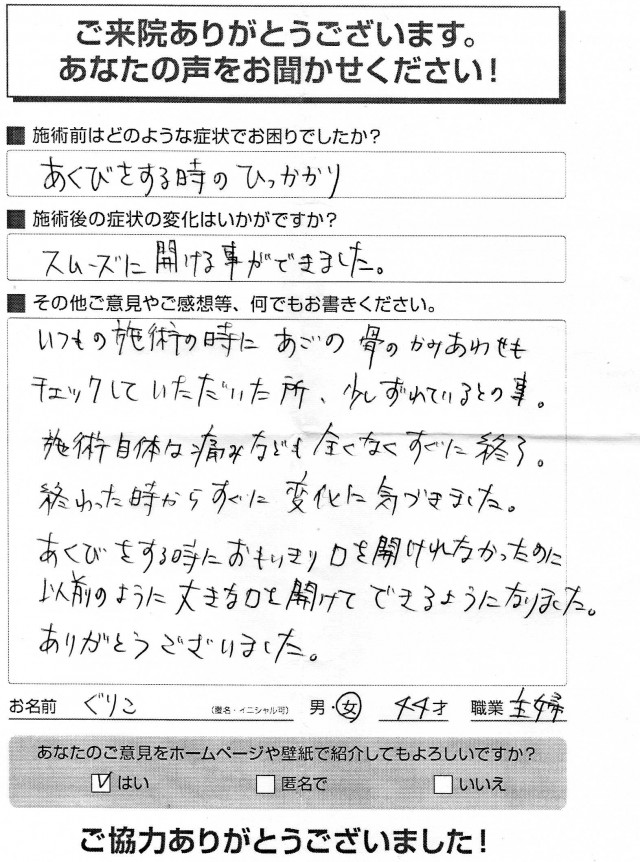 ご来院ありがとうございます。
あなたの声をお聞かせください!
■ 施術前はどのような症状でお困りでしたか?
あくびをする時のひっかかり
■ 施術後の症状の変化はいかがですか?
スムーズに開ける事ができました。
■ その他ご意見やご感想等、何でもお書きください。
いつもの施術の時にあごの骨のかみあわせも
チェックしていただいた所、少しずれているとの事。
施術自体は痛みなども全くなくすぐに終了。
終わった時からすぐに変化に気づきました。
あくびをする時におもいきり口を開けれなかったのに
以前のように大きな口を開けてできるようになりました。
ありがとうございました。
お名前 ぐりこ (匿名・イニシャル可) 男・女 44才 職業 主婦
あなたのご意見をホームページや壁紙で紹介してもよろしいですか?
☑はい □匿名で □いいえ
ご協力ありがとうございました!